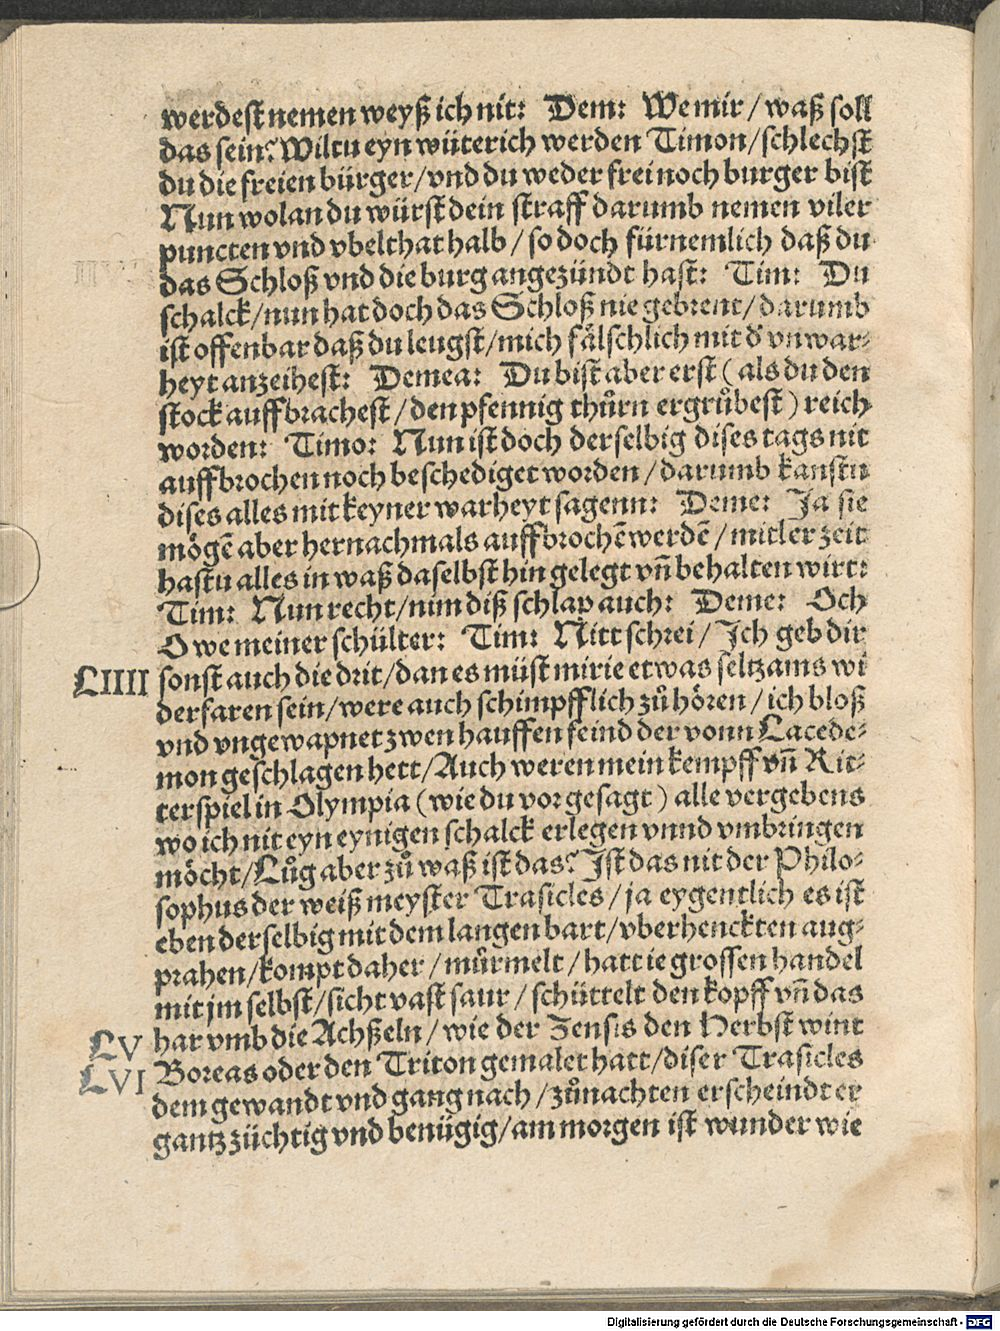 werdest nemen weyß ich nit: Dem: We mir/ waß soll
das sein? Wiltu eyn wüterich werden Timon/ schlechst
du die freien bürger/ vnd du weder frei noch burger bist
Nun wolan du würst dein straff darumb nemen viler
puncten vnd vbelthat halb/ so doch fürnemlich daß du
das Schloß vnd die burg angezündt hast: Tim: Du
schalck/ nun hat doch das Schloß nie gebrent/ darumb
ist offenbar daß du leugst/ mich fälschlich mit d' vnwar-
heyt anzeihest: Demea: Du bist aber erst (als du den
stock auffbrachest/ den pfennig thůrn ergrůbest) reich
worden: Timo: Nun ist doch derselbig dises tags nit
auffbrochen noch beschediget worden/ darumb kanstu
dises alles mit keyner warheyt sagenn: Deme: Ja sie
mögē aber hernachmals auffbrochē werdē/ mitler zeit
hastu alles in waß daselbst hin gelegt vñ behalten wirt:
Tim: Nun recht/ nim diß schlap auch: Deme: Och
O we meiner schülter: Tim: Nitt schrei/ Ich geb dir
LIIII sonst auch die drit/ dan es müst mir ie etwas seltzams wi
derfaren sein/ were auch schimpfflich zů hören/ ich bloß
vnd vngewapnet zwen hauffen feind der vonn Lacede-
mon geschlagen hett/ Auch weren mein kempff vñ Rit-
terspiel in Olympia (wie du vor gesagt) alle vergebens
wo ich nit eyn eynigen schalck erlegen vnnd vmbringen
möcht/ Lůg aber zů waß ist das? Ist das nit der Philo-
sophus der weiß meyster Trasicles/ ja eygentlich es ist
eben derselbig mit dem langen bart/ vberhenckten aug-
prahen/ kompt daher/ můrmelt/ hatt ie grossen handel
mit jm selbst/ sicht vast saur/ schüttelt den kopff vñ das
LV har vmb die Achßeln/ wie der Zensis den Herbst wint
LVI Boreas oder den Triton gemalet hatt/ diser Trasicles
dem gewandt vnd gang nach/ zůnachten erscheindt er
gantz züchtig vnd benügig/ am morgen ist wunder wie
Digitalisierung gefördert durch die Deutsche Forschungsgemeinschaft - DFG